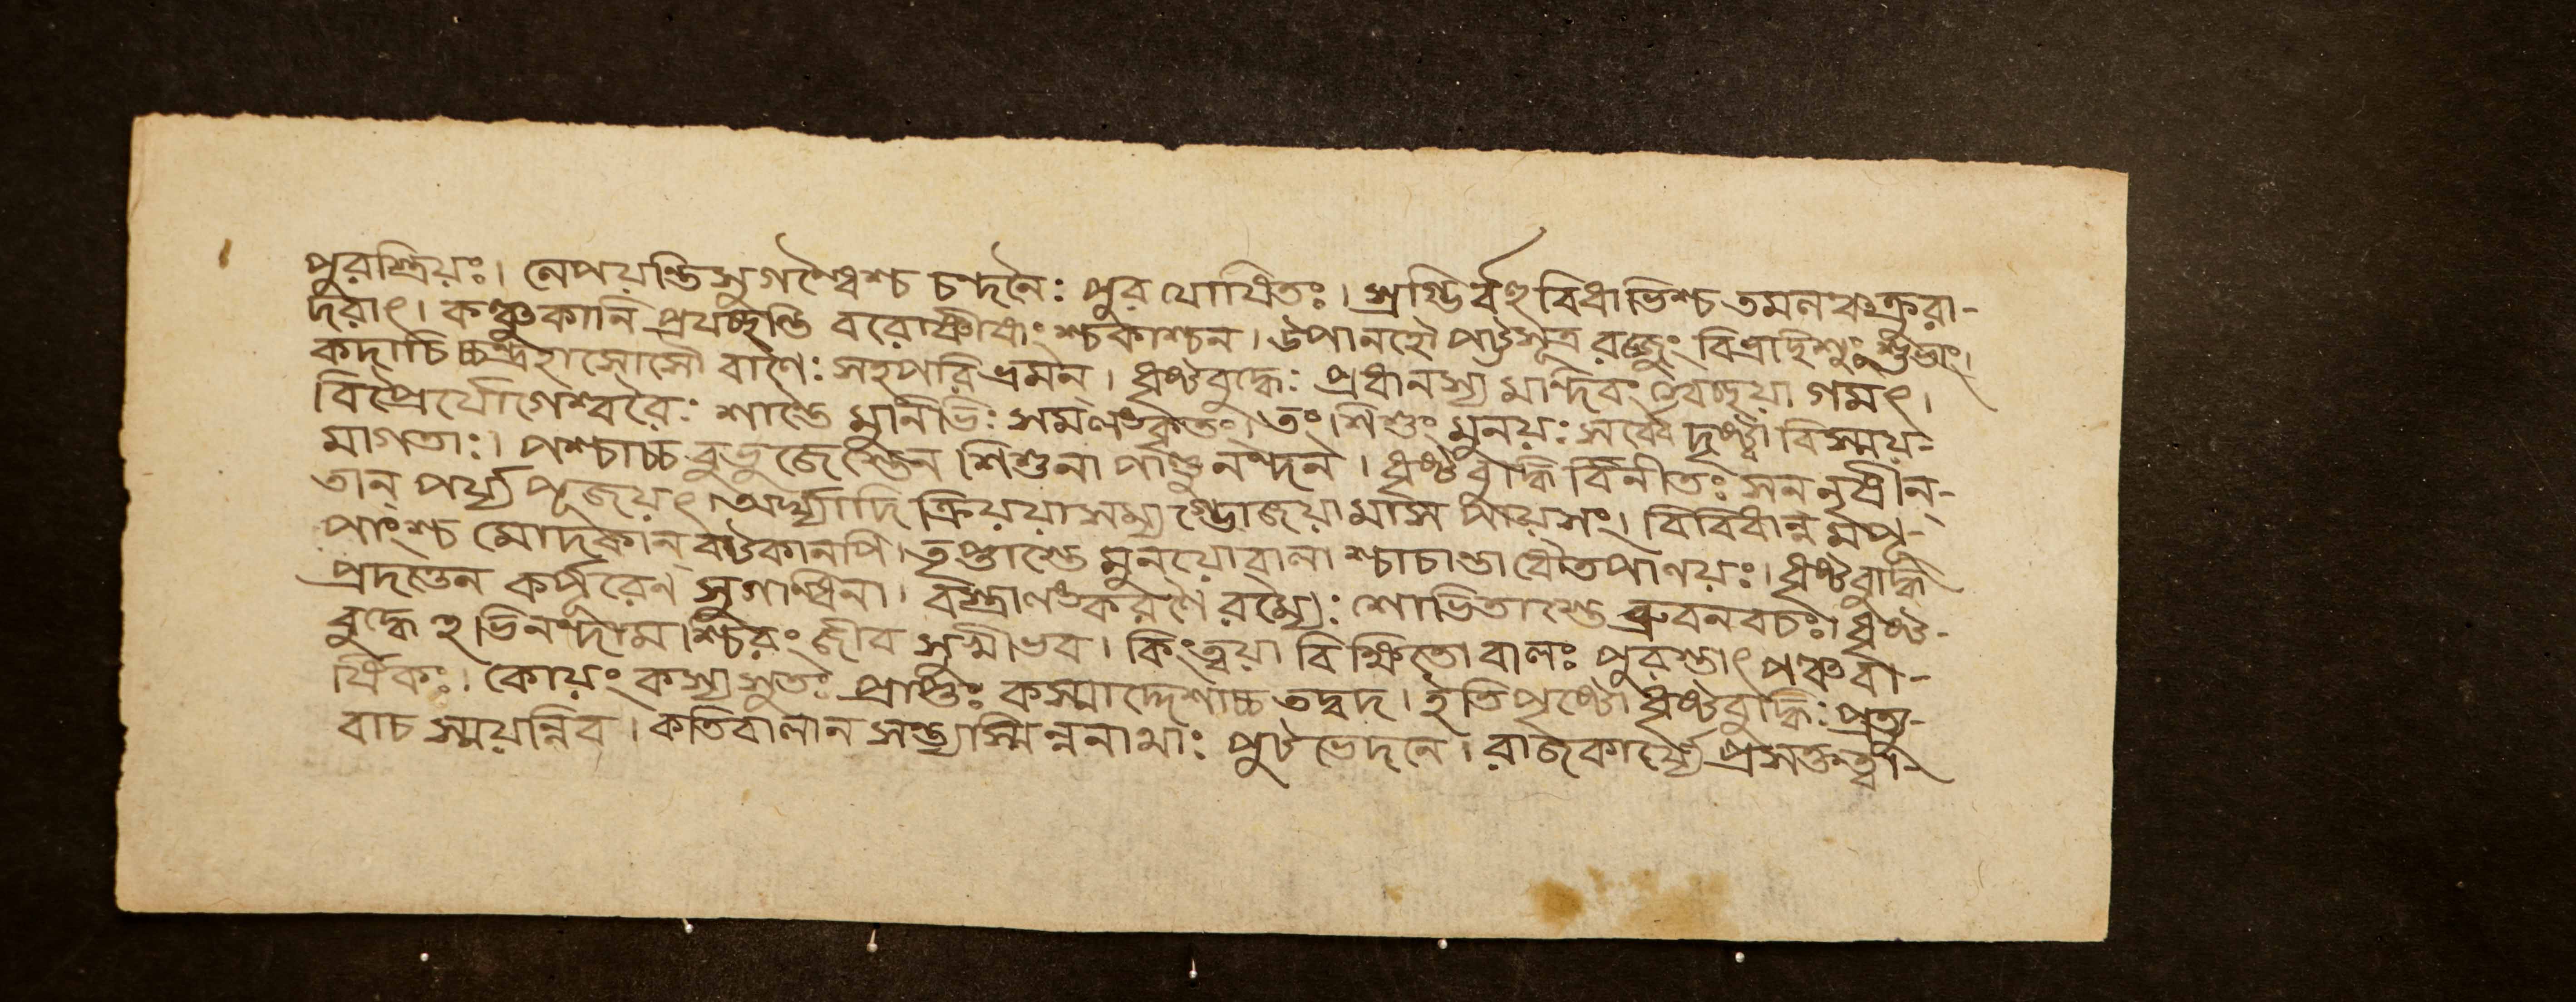 পুরস্ত্রিয়ঃ। লেপয়ন্তি সুগন্ধৈশ্চ চন্দনৈঃ পুরযোষিতঃ। স্রগ্ভির্বহুবিধাভিশ্চ তমলঞ্চক্রুরা-
দরাৎ। কঞ্চুকানি প্রযচ্ছন্তি বরোষ্ণীষাংশ্চ কাশ্চন। উপানহৌ পট্টসূত্র রজ্জুং বিপ্রাহিশুঃ শুভাং।
কদাচিচ্চন্দ্রহাসোসৌ বালৈঃ সহ পরিভ্রমন্। ধৃষ্টবুদ্ধেঃ প্রধানস্য মন্দিরং স্বেচ্ছয়াগমৎ।
বিপ্রৈর্যোগেশ্বরৈঃ শান্তৈ মুনিভিঃ সমলংকৃতং। তং শিশুং মুনয়ঃ সর্ব্বে দৃষ্ট্বা বিস্ময়-
মাগতাঃ। পশ্চাচ্চ বুভুজেস্তেন শিশুনা পাণ্ডুনন্দন। ধৃষ্টবুদ্ধি র্বিনীতঃ সন্ নৃষীন্-
তান্ পর্য্যপূজয়ৎ। অর্ঘ্যাদি ক্রিয়য়া সম্যগ্ভোজয়ামাস পায়সং। বিবিধান্নমপূ-
পাংশ্চ মোদকান্ বটকানপি। তৃপ্তাস্তে মুনয়ো বালাশ্চাচান্তা ধৌতপাণয়ঃ। ধৃষ্টবুদ্ধি
প্রদত্তেন কর্পূরেণ সুগন্ধিনা। বস্ত্রালংকরণৈ রম্যৈঃ শোভিতাস্তে ব্রুবন্ বচঃ। ধৃষ্ট-
বুদ্ধে হভিনন্দাম শ্চিরং জীব সুখীভব। কিং ত্বয়া বিক্ষিতো বালঃ পুরস্তাৎ পঞ্চবা-
র্ষিকঃ। কোয়ং কস্য সুতঃ প্রাপ্তঃ কস্মাদ্দেশাচ্চ তদ্বদ। ইতি পৃষ্টো ধৃষ্টবুদ্ধিঃ প্রত্যু-
বাচ স্ময়ন্নিব। কতি বালা ন সন্ত্যস্মিন্নাথাঃ পুটভেদনে। রাজকার্য্যে প্রসক্তত্বা-